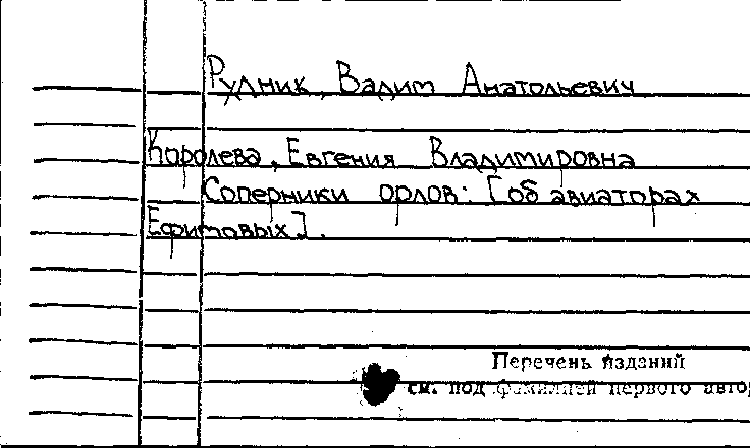 Рудник, Вадим Анатольевич
Королева, Евгения Владимировна
Соперники орлов: [об авиаторах
Ефимовых].
Перечень изданий
см. под фамилией первого авто